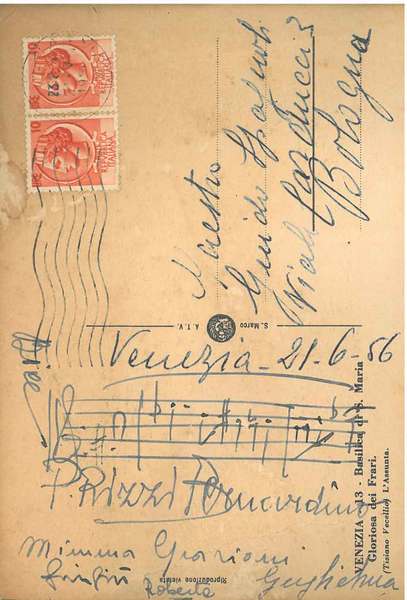 Maestro
Guido
Viale Carducci 3
Bologna
10
10
REPUBBLICA
ITALIANA
S. Marco
A.T.V.
Ave
Venezia - 21-6-56
P. Rizzi Bernardino
Mimma Graziani
Roberta
Guglielma
VENEZIA - 13 - Basilica di S. Maria
Gloriosa dei Frari.
(Tiziano Vecellio) L'Assunta.
Riproduzione vietata